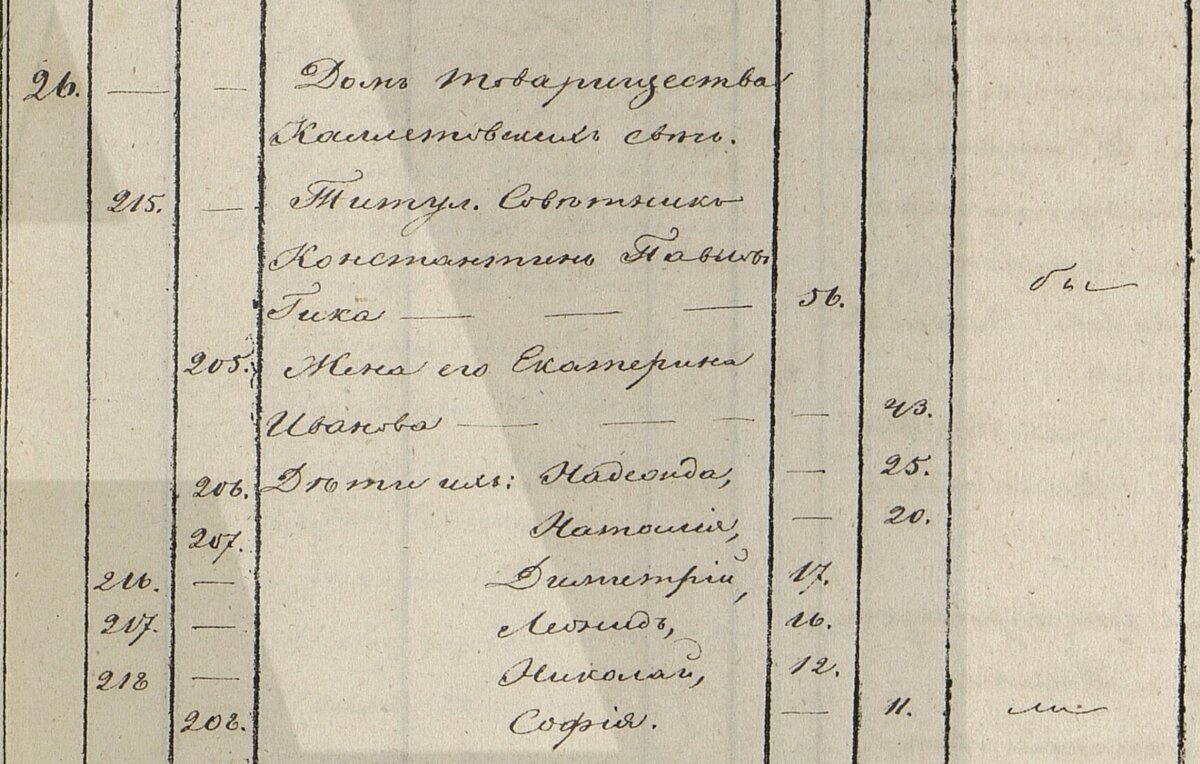 26. — — Домъ товарищества
Каллетовскихъ
215. — Титул. Совѣтникъ
Константинъ Павловъ
Гика — — — 56.
205. Жена его Екатерина
Иванова — — — — 43.
206. Дѣти ихъ: Надежда, — 25.
207. Наталія, — 20.
216. — Димитрій, 17.
217. — Леонидъ, 16.
218 — Николай, 12.
208. Софія. — 11.